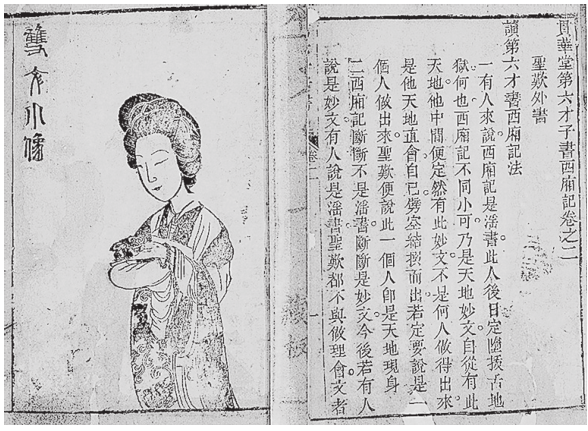 貫華堂第六才子書西廂記卷之二
聖歎外書
讀第六才書西廂記法
一有人來說西廂記是淫書此人後日定墮拔舌地
獄何也西廂記不同小可乃是天地妙文自從有此
天地他中間便定然有此妙文不是何人做得出來
是他天地直會自己劈空結撰而出若定要說是一
個人做出來聖歎便說此一個人卽是天地現身
二西廂記斷斷不是淫書斷斷是妙文今後若有人
說是妙文有人說是淫書聖歎都不與做理會文者
雙文小像